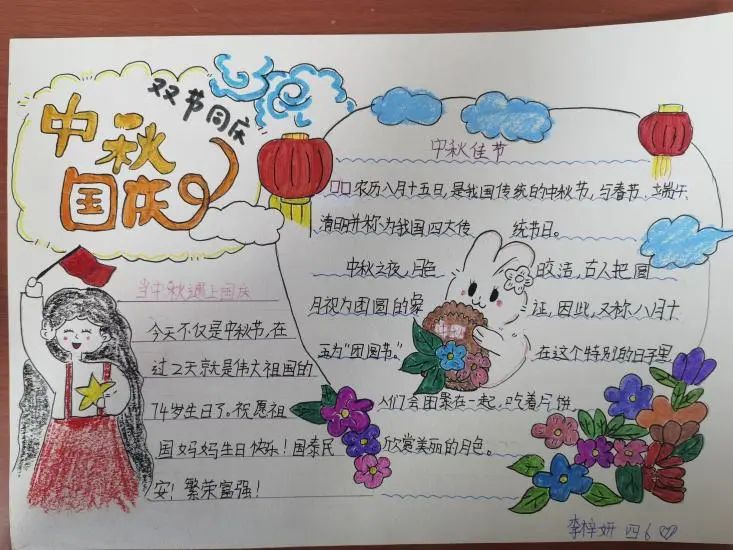 双节同庆
中秋
国庆
当中秋遇上国庆
今天不仅是中秋节,在
过2天就是伟大祖国的
74岁生日了。祝愿祖
国妈妈生日快乐!国泰民
安!繁荣富强!
中秋佳节
口口农历八月十五日,是我国传统的中秋节,与春节、端午、
清明并称为我国四大传统节日。
中秋之夜,月色皎洁,古人把圆
月视为团圆的象证,因此,又称八月十
五为“团圆节”。在这个特别的日子里
人们会团聚在一起,吃着月饼
欣赏美丽的月色。
中秋
李梓妍 四6